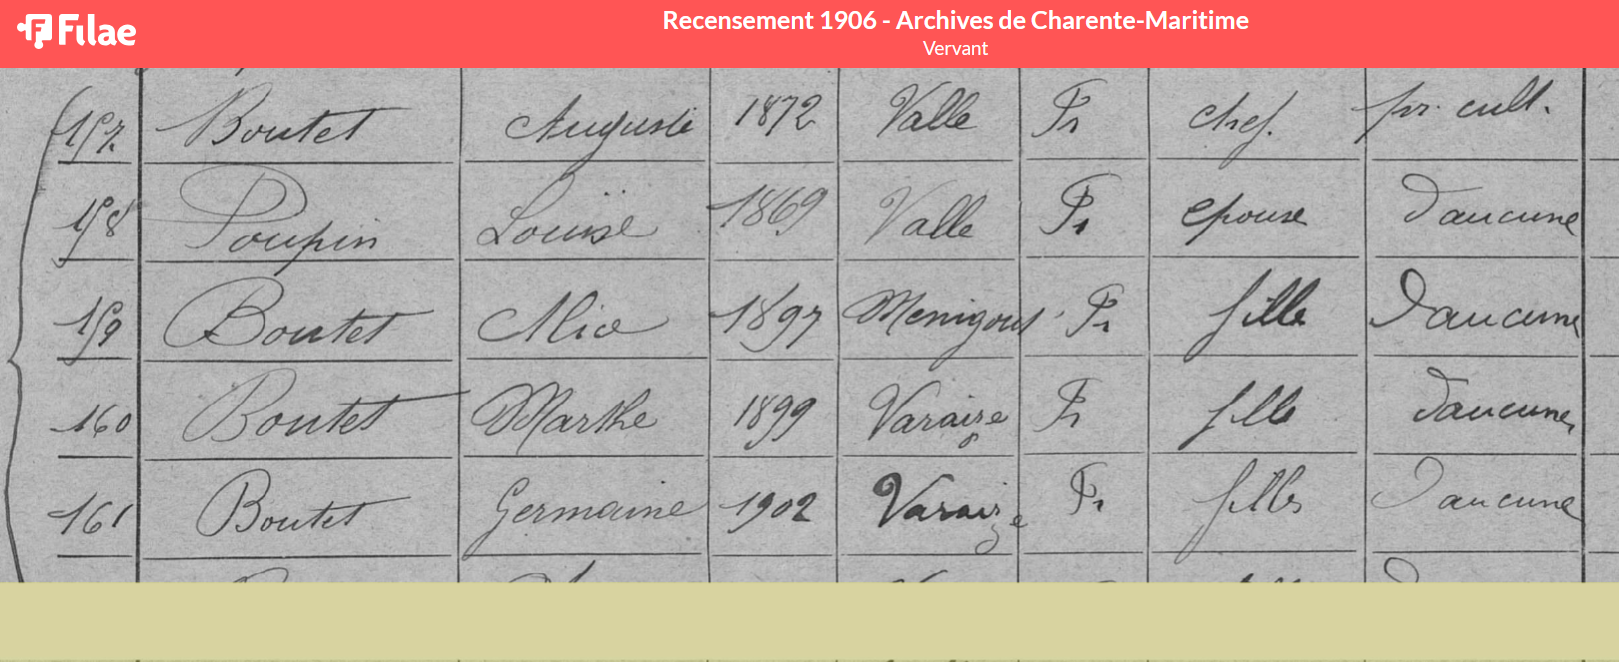 Filae
Recensement 1906 - Archives de Charente-Maritime
Vervant
157. Boutet Auguste 1872 Valle Fr chef. pr. cult.
158 Poupin Louise 1869 Valle Fr epouse d'aucune
159 Boutet Alice 1897 Menigout Fr fille D'aucune
160 Boutet Marthe 1899 Varaize Fr fille d'aucune
161 Boutet Germaine 1902 Varaize Fr fille D'aucune